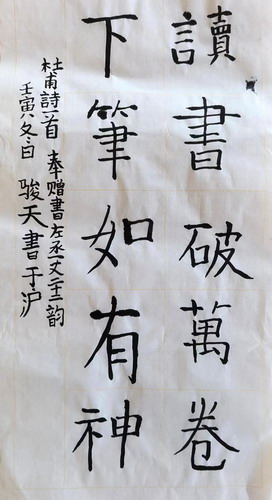 讀書破萬卷
下筆如有神
杜甫詩一首 奉赠書左丞丈二十二韵
壬寅冬日 骏天書于沪